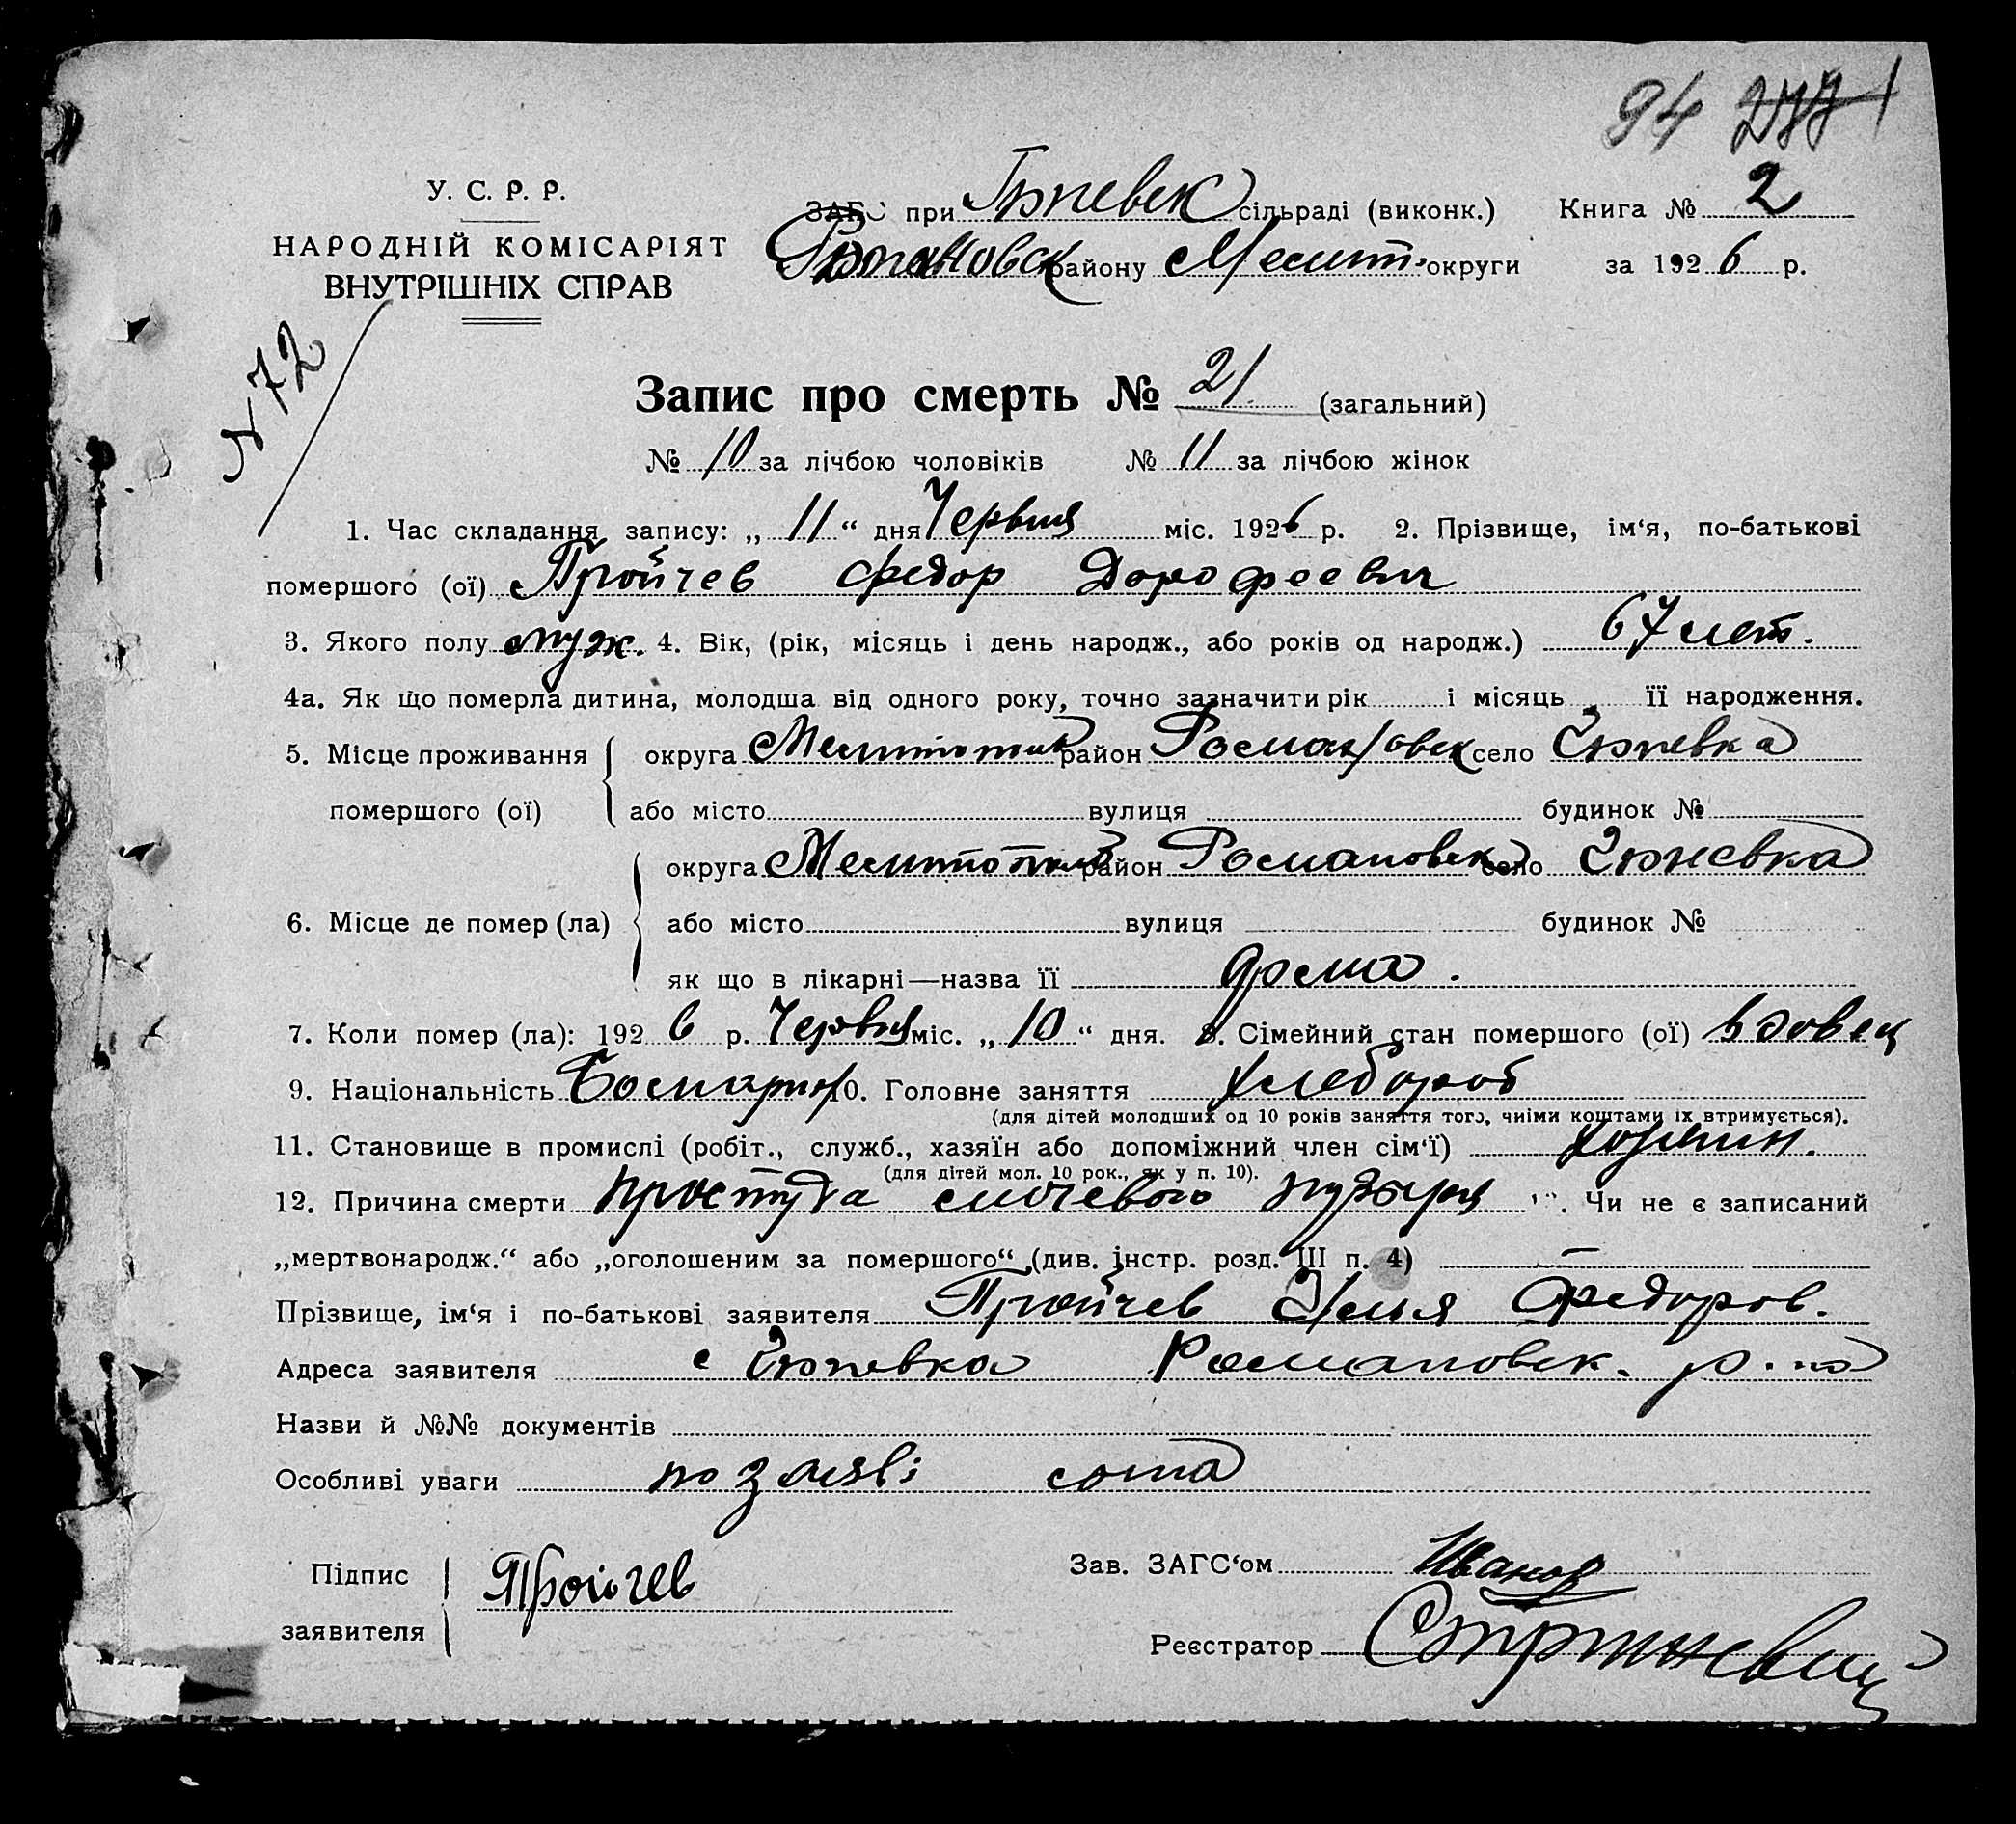 94 277 1
У. С. Р. Р.
НАРОДНІЙ КОМІСАРІЯТ
ВНУТРІШНІХ СПРАВ
ЗАГС при Гюневск сільраді (виконк.) Книга № 2
Романовск району Мелит. округи за 1926 р.
N 72
Запис про смерть № 21 (загальний)
№ 10 за лічбою чоловіків № 11 за лічбою жінок
1. Час складання запису: „11“ дня Червня міс. 1926 р. 2. Прізвище, ім‘я, по-батькові
помершого (ої) Пройчев Федор Дорофеевич
3. Якого полу муж. 4. Вік, (рік, місяць і день народж., або років од народж.) 67 лет.
4а. Як що померла дитина, молодша від одного року, точно зазначити рік і місяць її народження.
5. Місце проживання округа район Романовск село Гюневка
помершого (ої) або місто вулиця будинок №
округа район Романовск село Гюневка
6. Місце де помер (ла) або місто вулиця будинок №
як що в лікарні—назва її дома.
7. Коли помер (ла): 1926 р. Червня міс. „10“ дня. 8. Сімейний стан помершого (ої) вдовец
9. Національність 10. Головне заняття хлебороб
(для дітей молодших од 10 років заняття того, чиїми коштами їх втримується).
11. Становище в промислі (робіт., служб., хазяїн або допоміжний член сім‘ї) хозяин.
(для дітей мол. 10 рок., як у п. 10).
12. Причина смерти простуда мочевого пузыря Чи не є записаний
„мертвонародж.“ або „оголошеним за помершого“ (див. інстр. розд. III п. 4) —
Прізвище, ім‘я і по-батькові заявителя Пройчев Илья Федоров.
Адреса заявителя с Гюневка Романовск. р-на
Назви й №№ документів
Особливі уваги по заяві сина
Підпис Пройчев Зав. ЗАГС‘ом Иванов
заявителя Реєстратор